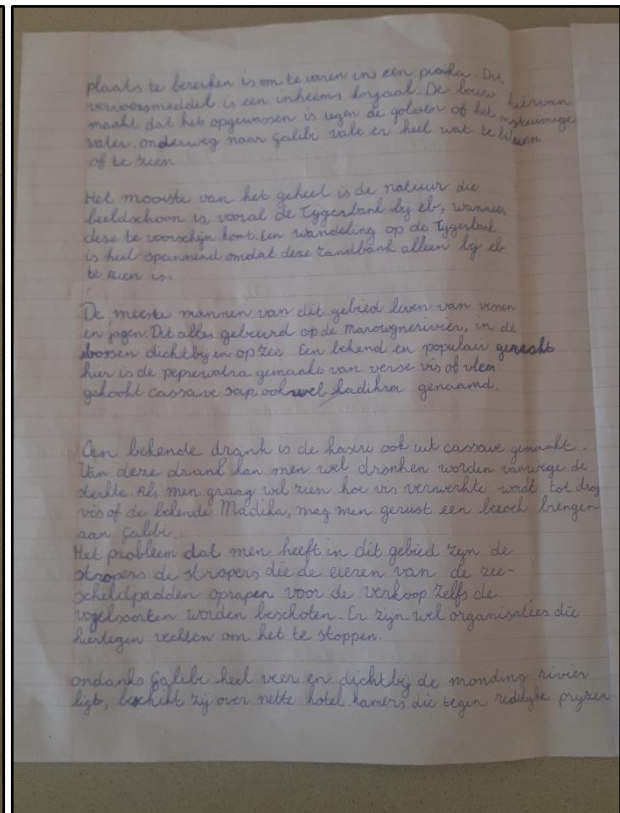 plaats te bereiken is om te varen in een piroka. Dit
vervoersmiddel is een inheems korjaal. De bouw hiervan
maakt dat het opgewassen is tegen de golven of het
water. onderweg naar Galibi valt er heel wat te beleven
of te zien
Het mooiste van het geheel is de natuur die
beeldschoon is, vooral de Tijgerbank bij eb, wanneer
deze te voorschijn komt. Een wandeling op de Tijgerbank
is heel spannend omdat deze zandbank alleen bij eb
te zien is.
De meeste mannen van dit gebied leven van vissen
en jagen. Dit alles gebeurd op de Marowijnerivier, in de
bossen dichtbij en op zee. Een bekend en populair gerecht
hier is de peprewatra gemaakt van verse vis of vlees
gekookt cassave sap ook wel kadikra genaamd.
Een bekende drank is de kasiri ook uit cassave gemaakt.
Van deze drank kan men wel dronken worden vanwege de
sterkte. Als men graag wil zien hoe vis verwerkt wordt tot droge
vis of de bekende Madika, mag men gerust een bezoek brengen
aan Galibi.
Het probleem dat men heeft in dit gebied zijn de
stropers de stropers die de eieren van de zee-
schildpadden oprapen voor de verkoop zelfs de
vogelsoorten worden beschoten. Er zijn wel organisaties die
hiertegen vechten om het te stoppen.
ondanks Galibi heel veer en dichtbij de monding rivier
ligt, beschikt zij over nette hotel kamers die tegen redelijke prijzen